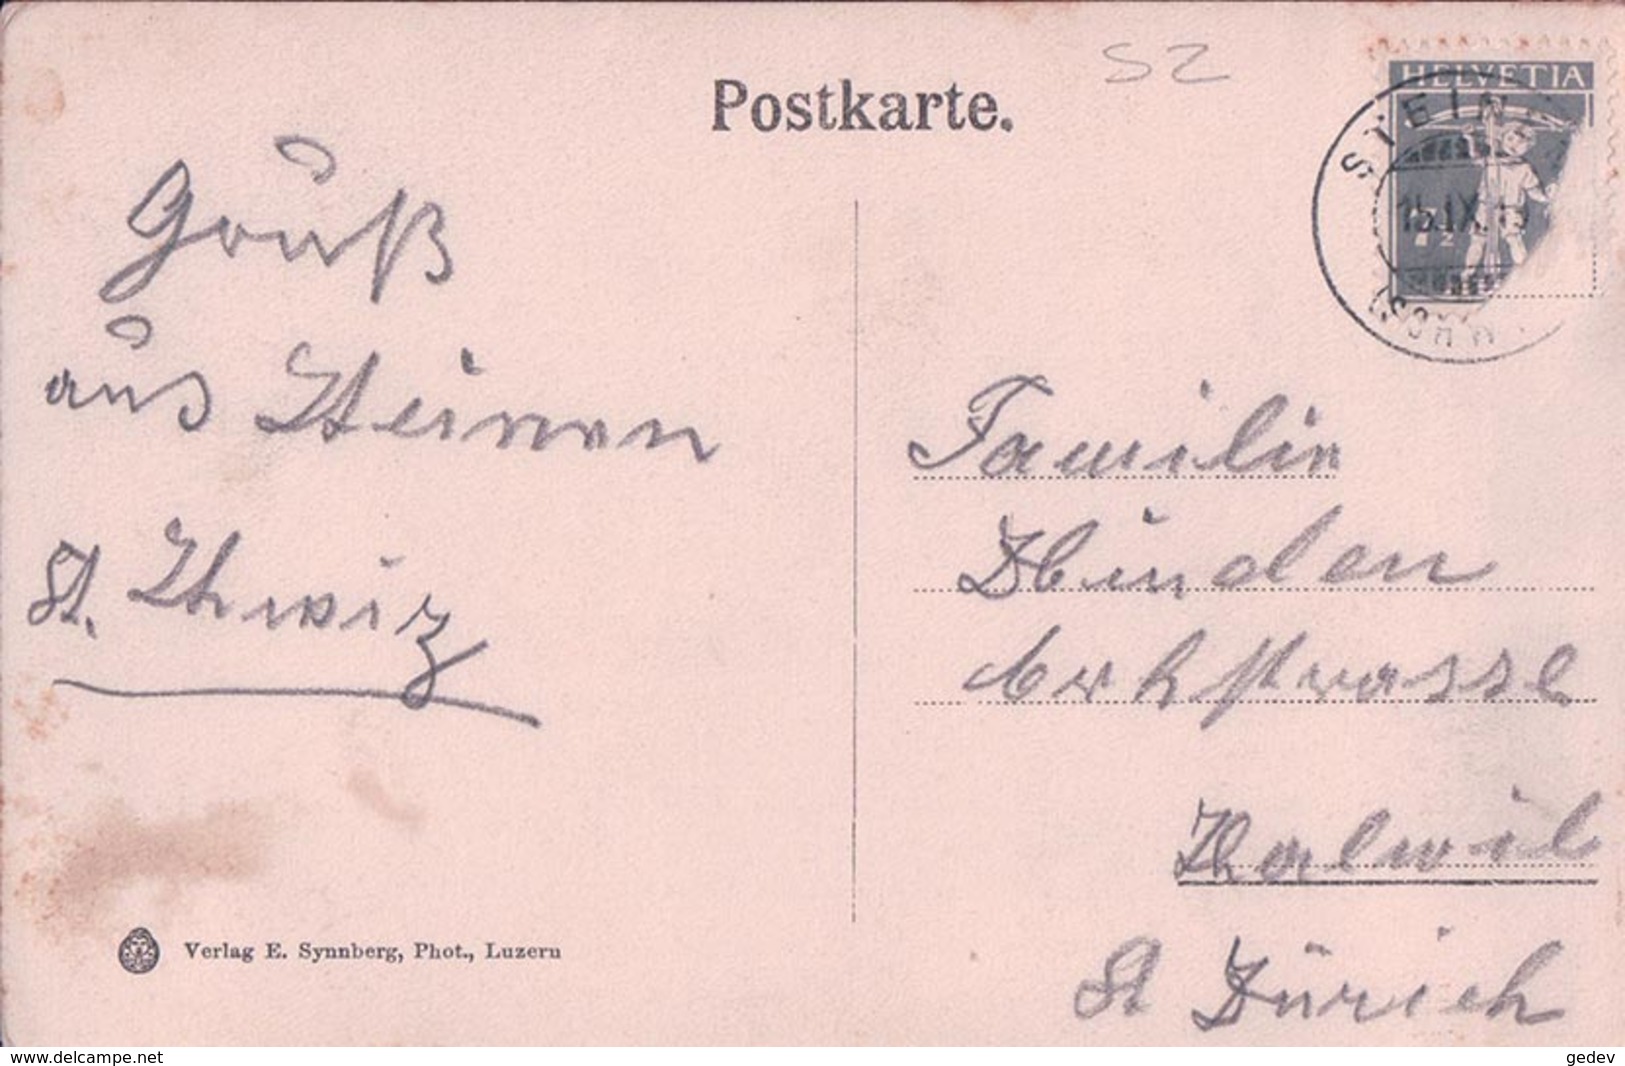 Postkarte.
SZ
HELVETIA
STEIN
15.IX.
7½
(SCHW
Gruß
aus Steinen
Kt. Schwiz
Familie
Zbinden
strasse
Thalwil
Kt Zürich
Verlag E. Synnberg, Phot., Luzern
www.delcampe.net
gedev